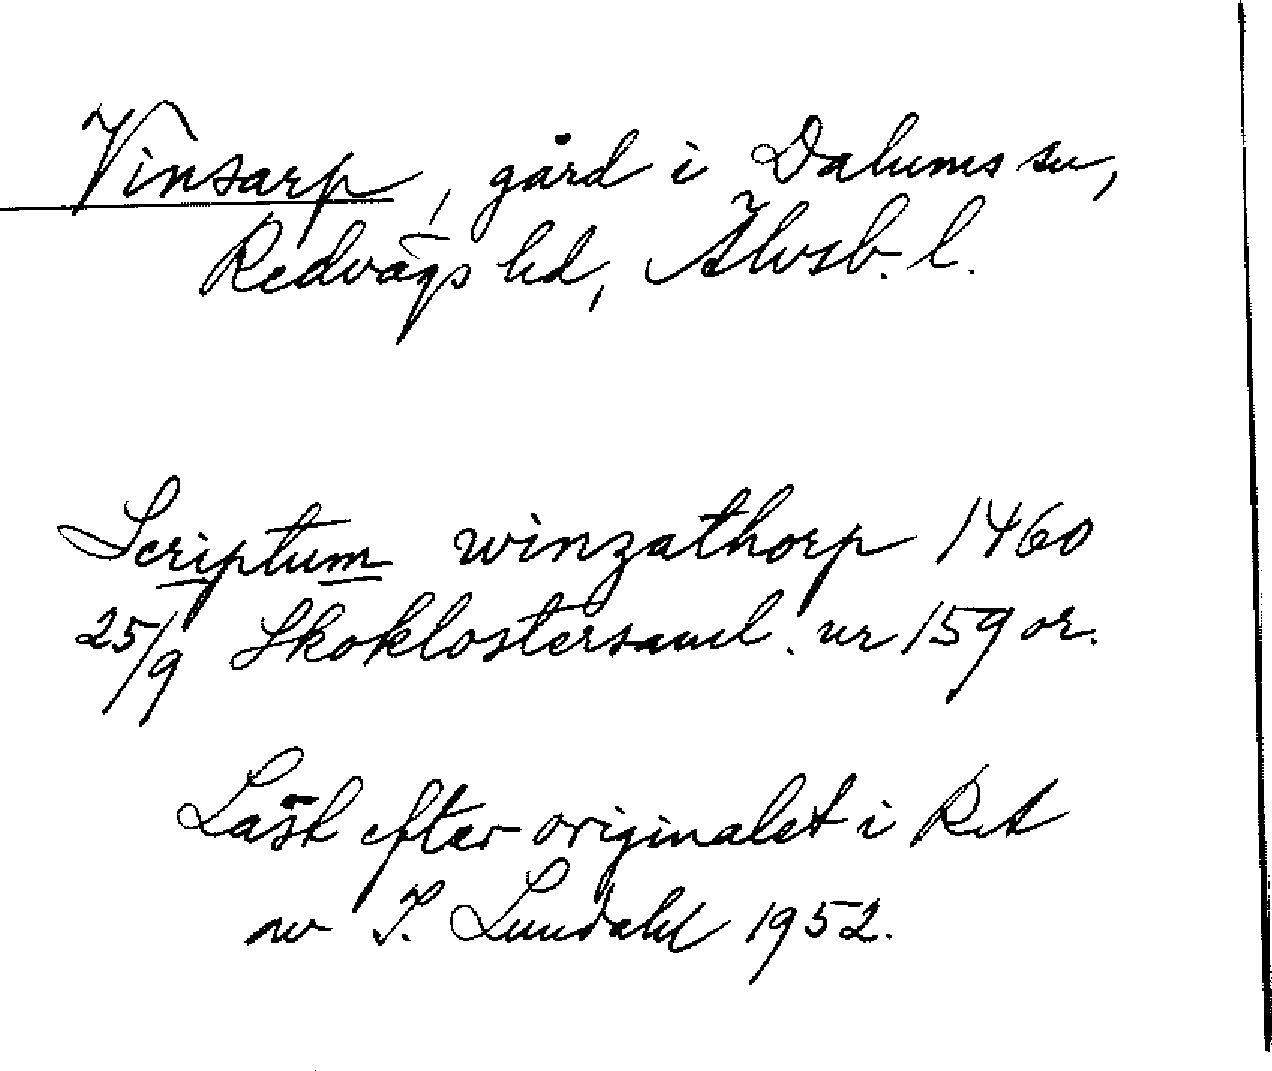 Vinsarp, gård i Dalums sn,
Redvägs hd, Älvsb. l.
Scriptum winzathorp 1460
25/9 Skoklostersaml. nr 159 or.
Läst efter originalet i RA
av I. Lundahl 1952.